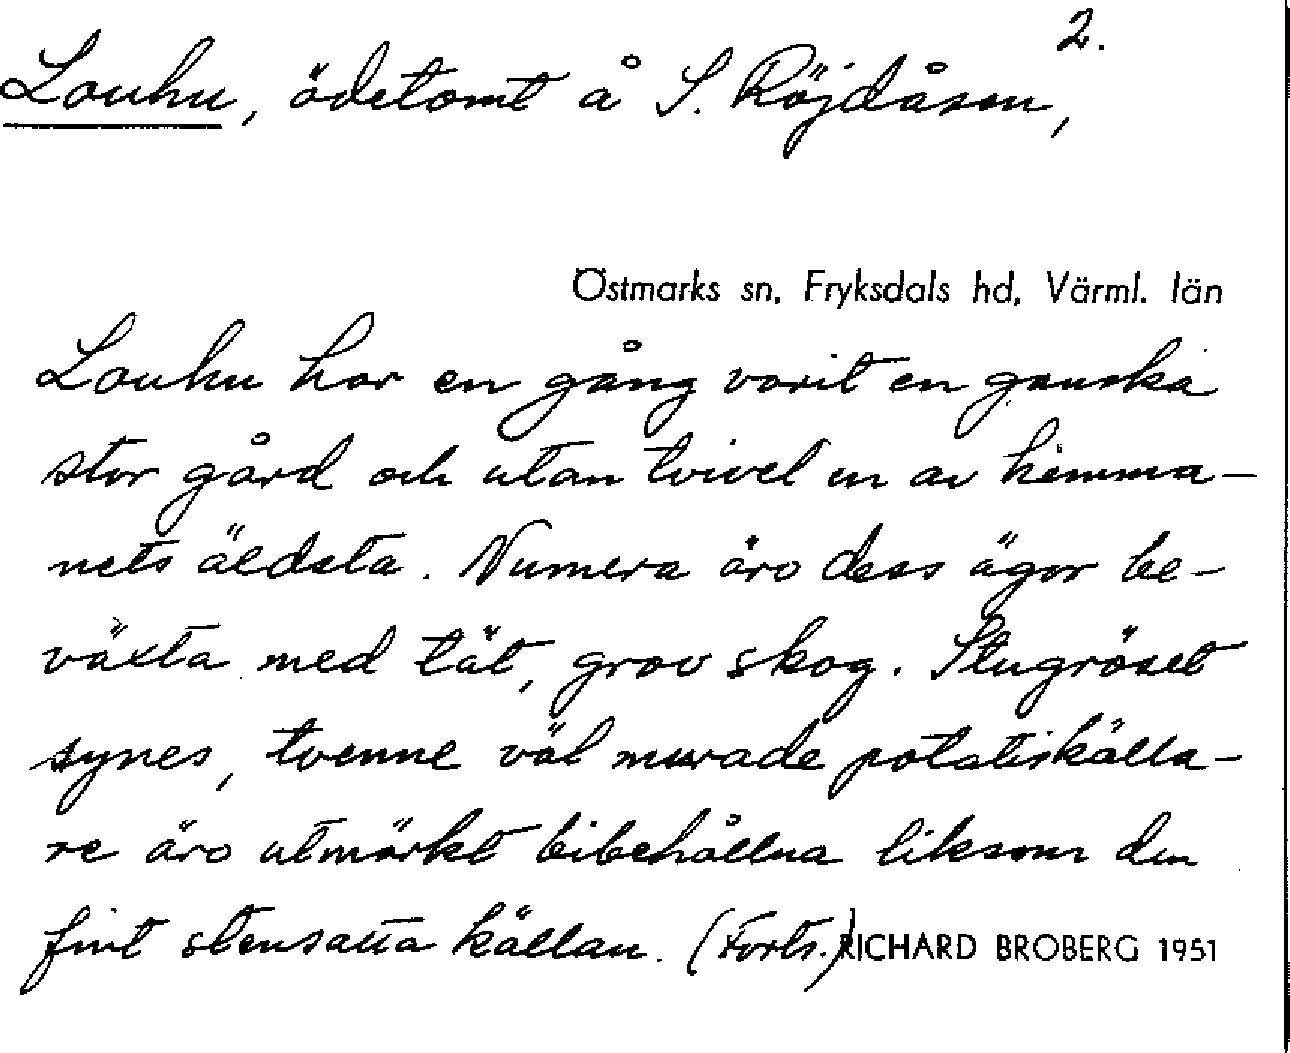 2.
Louhu, ödetomt å S. Röjdåsen,
Östmarks sn, Fryksdals hd, Värml. län
Louhu har en gång varit en ganska
stor gård och utan tvivel en av hemma-
nets äldsta. Numera äro dess ägor be-
växta med tät, grov skog. Stugröset
synes, tvenne väl murade potatiskälla-
re äro utmärkt bibehållna liksom den
fint stensatta källan. (Forts.) RICHARD BROBERG 1951